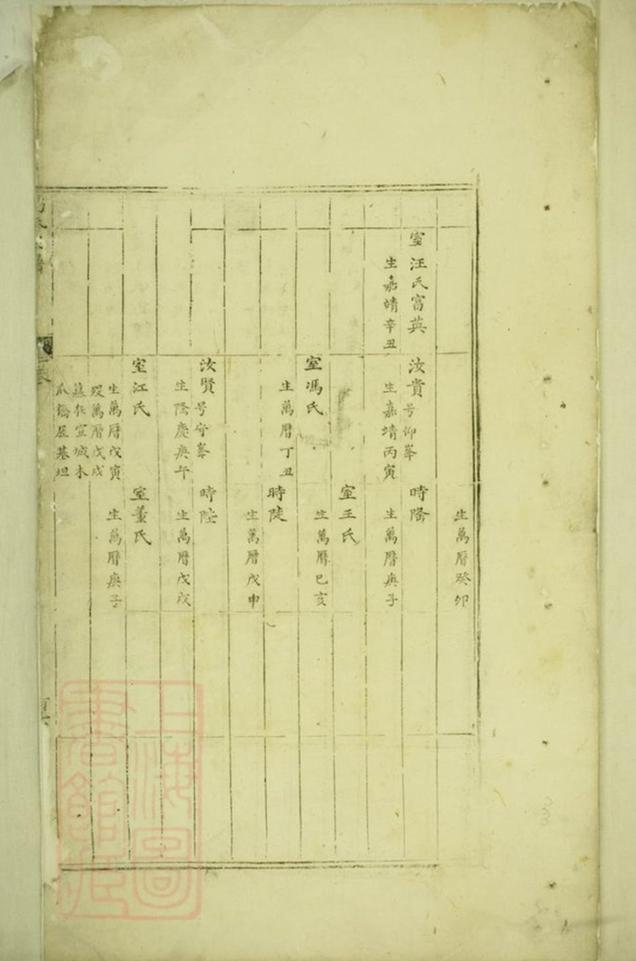 生萬曆癸卯
室汪氏富英
生嘉靖辛丑
汝貴号仰峯
生嘉靖丙寅
時隆
生萬曆庚子
室王氏
生萬曆己亥
室馮氏
生萬曆丁丑
時陡
生萬曆戊申
汝賢号守峯
生隆慶庚午
時陞
生萬曆戊戌
室江氏
生萬曆戊寅
歿萬曆戊戌
宣城木
屋基坦
室董氏
生萬曆庚子
卷
上海圖書館藏